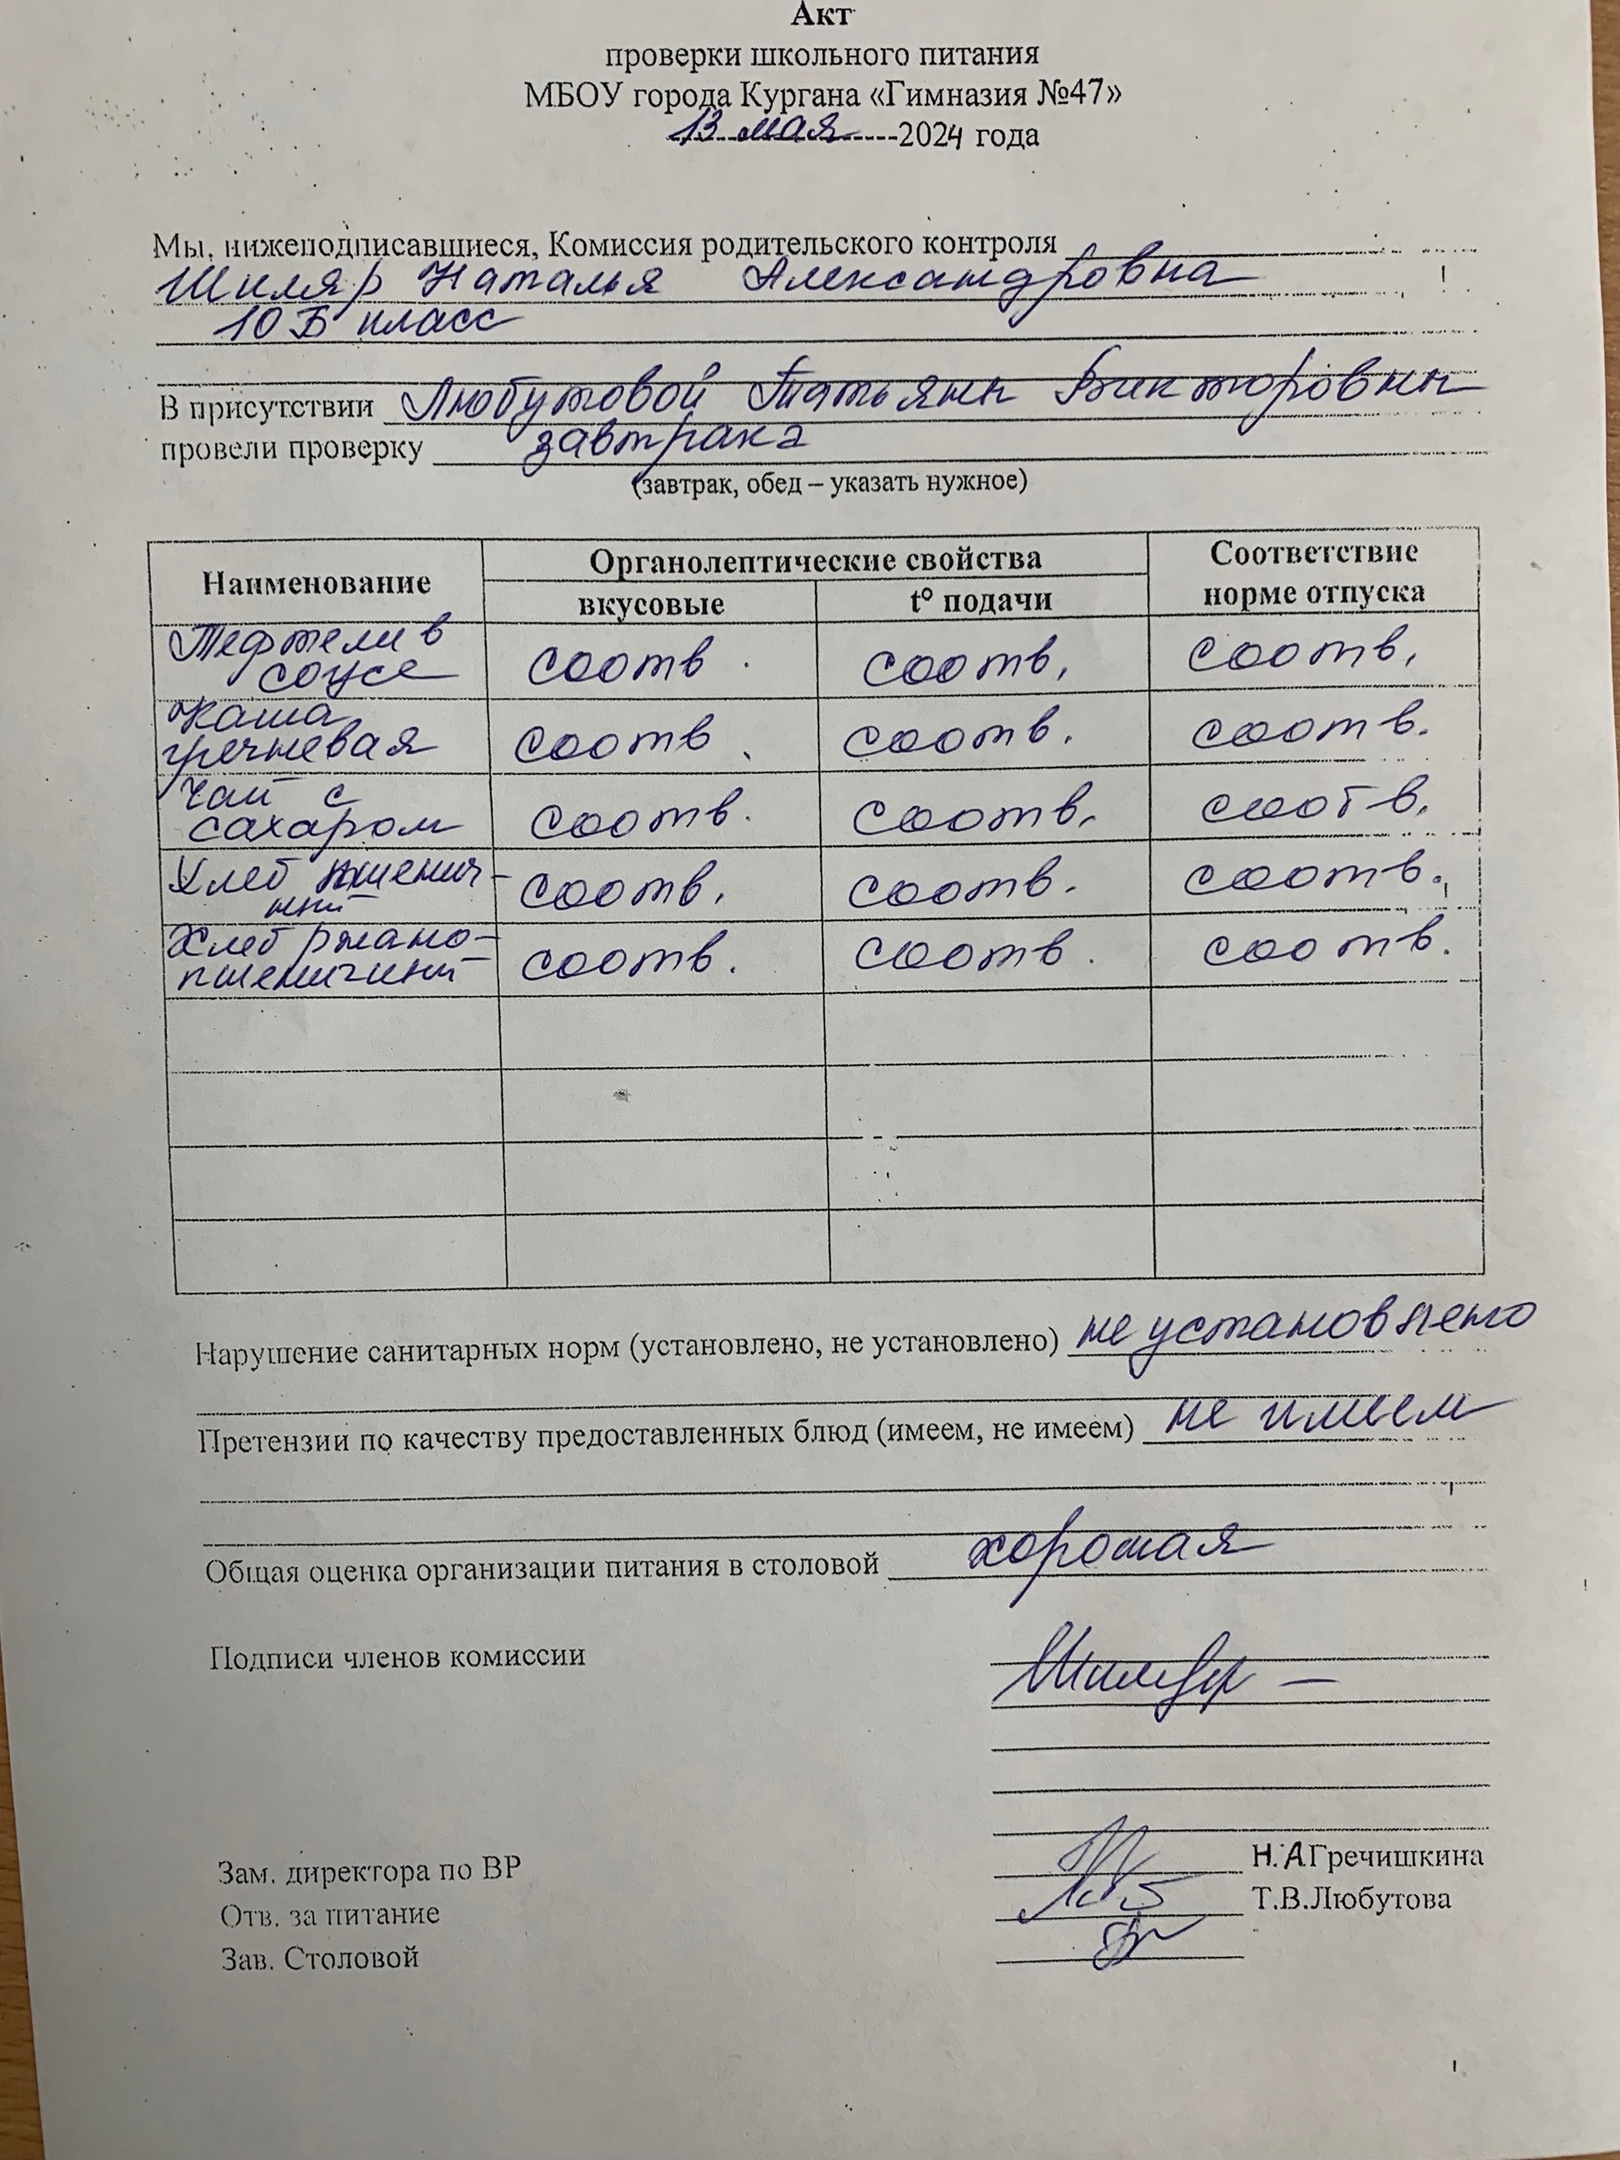 Акт
проверки школьного питания
МБОУ города Кургана «Гимназия №47»
13 мая 2024 года
Мы, нижеподписавшиеся, Комиссия родительского контроля
Шиляр Наталья Александровна
10 Б класс
В присутствии Любутовой Татьяны Викторовны
провели проверку завтрака
(завтрак, обед – указать нужное)
Наименование Органолептические свойства Соответствие норме отпуска
вкусовые t° подачи
Тефтели в соусе соотв. соотв. соотв.
Каша гречневая соотв. соотв. соотв.
Чай с сахаром соотв. соотв. соотв.
Хлеб пшеничный соотв. соотв. соотв.
Хлеб ржано-пшеничный соотв. соотв. соотв.
Нарушение санитарных норм (установлено, не установлено) не установлено
Претензии по качеству предоставленных блюд (имеем, не имеем) не имеем
Общая оценка организации питания в столовой хорошая
Подписи членов комиссии
Зам. директора по ВР Н.А Гречишкина
Отв. за питание Т.В.Любутова
Зав. Столовой